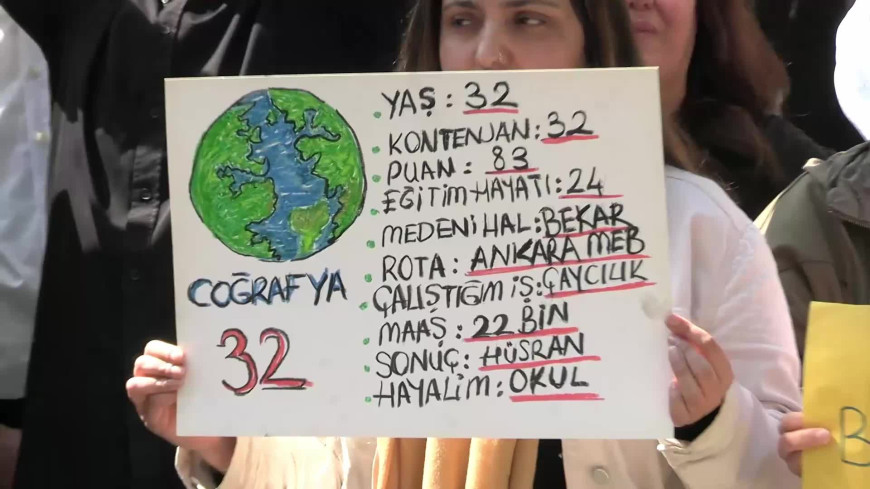 COĞRAFYA
32
YAŞ: 32
KONTENJAN: 32
PUAN: 83
EĞİTİM HAYATI: 24
MEDENİ HAL: BEKAR
ROTA: ANKARA MEB
ÇALIŞTIĞIM İŞ: ÇAYCILIK
MAAŞ: 22 BİN
SONUÇ: HÜSRAN
HAYALİM: OKUL
B